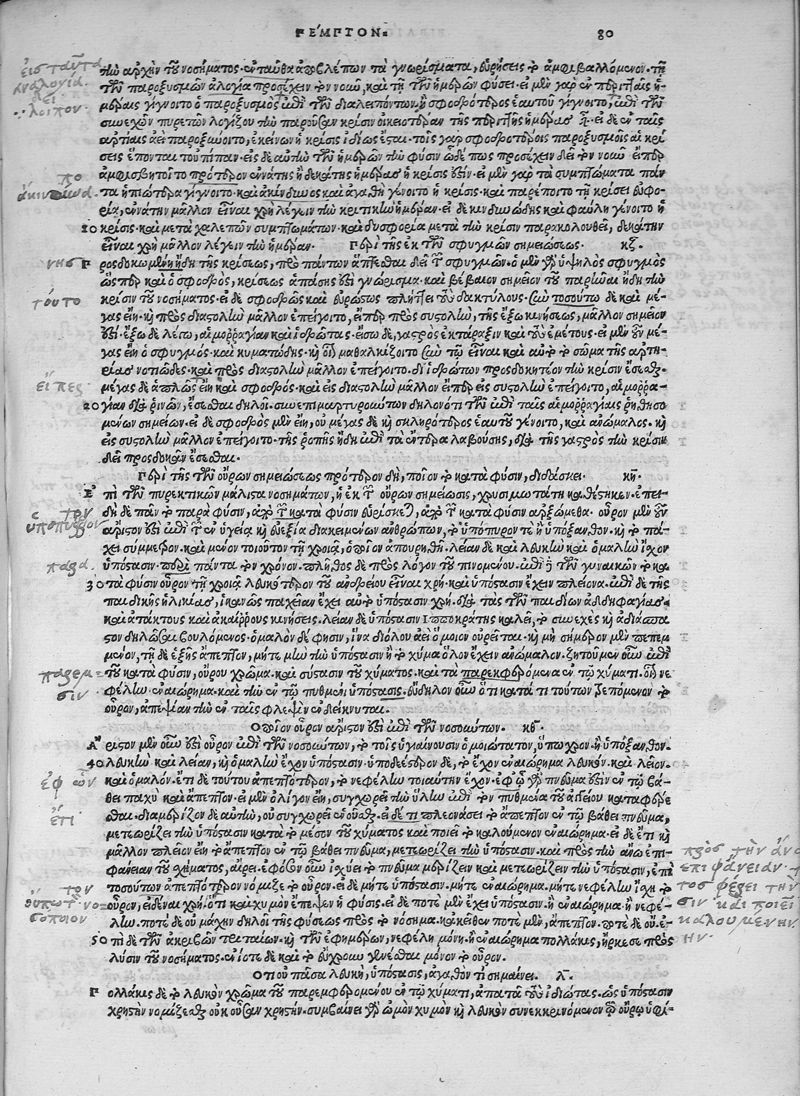 ΠΕΜΠΤΟΝ. 80
τὴν ἀρχὴν τοῦ νοσήματος. ἐνταῦθα ἀποβλέπων τὰ γνωρίσματα, εὑρήσεις τὸ ἀμφιβαλλόμενον. τῇ
τῶν παροξυσμῶν ἀλογία προσέχειν τὸν νοῦν, καὶ τῇ τῶν ἡμερῶν φύσει. εἰ μὲν γὰρ ἐν περιτταῖς ἡ-
μέραις γίγνοιτο ὁ παροξυσμὸς ἐπὶ τῶν διαλειπόντων, ἢ σφοδρότερος ἑαυτοῦ γίγνοιτο, ἐπὶ τῶν
συνεχῶν πυρετῶν λογίζου τὴν παροῦσαν κρίσιν οἰκειοτέραν τῆς περιττῆς ἡμέρας εἶναι. εἰ δὲ ἐν ταῖς
ἀρτίαις ἀεὶ παροξύνοιτο, ἐκείνων ἡ κρίσις ἰδίως ἔσται. τοῖς γὰρ σφοδροτέροις παροξυσμοῖς αἱ κρί-
σεις ἕπονται τοὐπίπαν. εἰς δὲ αὐτὴν τῶν ἡμερῶν τὴν φύσιν ὧδέ πως προσέχειν δεῖ τὸν νοῦν εἴπερ
ἀμφισβητοῖτο πρότερον ἐννάτης ἢ δεκάτης ἡμέρας ἡ κρίσις ἐστίν. εἰ μὲν γὰρ τὰ συμπτώματα πάν
τα ἠπιώτερα γίγνοιτο καὶ ἀκίνδυνος καὶ ἀγαθὴ γένοιτο ἡ κρίσις. καὶ παρέποιτο τῇ κρίσει εὐφο-
ρία, ἐννάτην μᾶλλον εἶναι χρὴ λέγειν τὴν κριτικὴν ἡμέραν. εἰ δὲ κινδυώδης καὶ φαύλη γένοιτο ἡ
20 κρίσις. καὶ μετὰ χαλεπῶν συμπτωμάτων. καὶ δυσφορία μετὰ τὴν κρίσιν παρακολουθεῖ, δεκάτην
εἶναι χρὴ μᾶλλον λέγειν τὴν ἡμέραν. Περὶ τῆς ἐκ τῶν σφυγμῶν σημειώσεως. κζ.
Προσδοκωμένη ἤδη τῆς κρίσεως, πρὸ πάντων ἅπτεσθαι δεῖ τῶν σφυγμῶν. ὁ μὲν γὰρ ὑψηλὸς σφυγμὸς
ὥσπερ καὶ ὁ σφοδρὸς, κρίσεως ἁπάσης ἐστὶ γνώρισμα. καὶ βέβαιον σημεῖον τοῦ παρεῖναι ἤδη τὴν
κρίσιν τοῦ νοσήματος. εἰ δὲ σφοδρῶς καὶ εὐρώστως πλήττει τοὺς δακτύλους. σὺν τοσούτῳ δὲ καὶ μέ-
γας εἴη. καὶ πρὸς διαστολὴν μᾶλλον ἐπείγοιτο, εἴπερ πρὸς συστολὴν, τῆς ἔξω κινήσεως, μᾶλλον σημεῖον
ἐστί. ἔξω δὲ λέγω, αἱμορραγίαν καὶ ἱδρῶτας. εἴσω δὲ, γαστρὸς ἐκτάραξιν καὶ τοὺς ἐμέτους. εἰ μὲν οὖν μέ-
γας εἴη ὁ σφυγμὸς. καὶ κυματώδης. καὶ οἷον μαθαλκίζοιτο σὺν τῷ εἶναι καὶ αὐτὸ τὸ σῶμα τῆς ἀρτη-
ρίας νοτιῶδες. καὶ πρὸς διαστολὴν μᾶλλον ἐπείγοιτο. δι' ἱδρώτων προσδοκητέον τὴν κρίσιν ἔσεσθαι.
μέγας δὲ ἁπλῶς εἴη καὶ σφοδρὸς. καὶ εἰς διαστολὴν μᾶλλον εἴπερ εἰς συστολὴν ἐπείγοιτο, αἱμορρα-
20 γίαν διὰ ῥινῶν, ἔσεσθαι δηλοῖ. συνεπιμαρτυρούντων δηλονότι τῶν ἐπὶ ταῖς αἱμορραγίαις ῥηθησο
μένων σημείων. εἰ δὲ σφοδρὸς μὲν εἴη, οὐ μέγας δὲ καὶ σκληρότερος ἑαυτοῦ γένοιτο, καὶ ἀνώμαλος. καὶ
εἰς συστολὴν μᾶλλον ἐπείγοιτο. τῆς ῥοπῆς ἤδη ἐπὶ τὰ ἔντερα λαβούσης, διὰ τῆς γαστρὸς τὴν κρίσιν
δεῖ προσδοκᾶν ἔσεσθαι.
Περὶ τῆς τῶν οὔρων σημειώσεως πρότερον δὲ, ποῖον τὸ κατὰ φύσιν, διδάσκει. κη.
Ἐπὶ τῶν πυρεκτικῶν μάλιστα νοσημάτων, ἡ ἐκ τῶν οὔρων σημείωσις, χρησιμωτάτη καθέστηκεν. ἐπει-
δὴ δὲ πᾶν τὸ παρὰ φύσιν, ἀπὸ τοῦ κατὰ φύσιν εὑρίσκεται, ἀπὸ τοῦ κατὰ φύσιν ἀρξώμεθα. οὖρον μὲν οὖν
ἄριστον ἐστὶ ἐπὶ τῶν ἐν ὑγείᾳ καὶ εὐεξίᾳ διακειμένων ἀνθρώπων, τὸ ὑπόπυρον τε ἢ ὑπόξανθον. καὶ τὸ πά-
χει σύμμετρον. καὶ μένον τοιοῦτον τῇ χροιᾷ, ὁποῖον ἀπουρήθη. λείαν δὲ καὶ λευκὴν καὶ ὁμαλὴν ἴχον
ὑπόστασιν παρὰ πάντα τὸν χρόνον. πλῆθος δὲ πρὸς λόγον τοῦ πινομένου. ἐπὶ δὲ τῶν γυναικῶν τὸ κα-
30 τὰ φύσιν οὖρον τῇ χροιᾷ λευκότερον τοῦ ἀνδρείου εἶναι χρή. καὶ ὑπόστασιν ἔχειν πλείονα. ἐπὶ δὲ τῆς
παιδικῆς ἡλικίας, ἱκανῶς παχεῖαν ἔχει αὐτὸ ὑπόστασιν χρή. διὰ τὰς τῶν παιδίων ἀδδηφαγίας.
καὶ ἀτάκτους καὶ ἀκαίρους κινήσεις. λείαν δὲ ὑπόστασιν Ἱπποκράτης καλεῖ, τὸ συνεχὲς καὶ ἀδιάσπα-
στον δηλῶσαι βουλόμενος. ὁμαλὸν δέ φησιν, ἵνα διόλου ἀεὶ ὅμοιον οὐρεῖται. καὶ μὴ σήμερον μὲν πεπεμ
μένον, τῇ δὲ ἑξῆς ἄπεπτον, μήτε μὴν ὑπόστασιν ἢ τὸ χύμα ὅλον ἔχειν ἀνώμαλον. ζητοῦμεν οὖν ἐπὶ
τοῦ κατὰ φύσιν, οὔρου χρῶμα. καὶ σύστασιν τοῦ χύματος. καὶ τὰ παρεκφερόμενα ἐν τῷ χύματι. οἷον νε
φέλην. ἐναιώρημα. καὶ τὴν ἐν τῷ πυθμένι ὑπόστασις. εὔδηλον οὖν ὅτι κατά τι τούτων τρεπόμενον τὸ
οὖρον, ἀπεψίαν τὴν ἐν ταῖς φλεψὶν ἐνδείκνυται.
Ὁποῖον οὖρον ἄριστον ἐστὶ ἐπὶ τῶν νοσούντων. κθ.
Ἄριστον μὲν οὖν ἐστὶ οὖρον ἐπὶ τῶν νοσούντων, τὸ τοῖς ὑγιαίνουσιν ὁμοιώτατον, ὕπωχρον. ἢ ὑπόξανθον.
40 λευκὴν καὶ λείαν, καὶ ὁμαλὴν ἔχον ὑπόστασιν. ὑποδεέστερον δὲ, τὸ ἔχον ἐναιώρημα λευκὸν. καὶ λεῖον.
καὶ ὁμαλόν. ἔτι δὲ τούτου ἀπεπτότερον, τὸ νεφέλην τοιαύτην ἔχον. ἐφ' ᾧ γὰρ πνεῦμα ἐστὶν ἐν τῷ βά-
θει παχὺ καὶ ἄπεπτον. εἰ μὲν ὀλίγον εἴη, συγχωρεῖ τὴν ὕλην ἐπὶ τὸν πυθμένα τοῦ ἀγγείου καταφέρε
σθαι. διαμερίζον δὲ αὐτὴν, οὐ συγχωρεῖ ἑνοῦσθαι. εἰ δέ τι πλεονάσει τὸ ἄπεπτον ἐν τῷ βάθει πνεῦμα,
μετεωρίζει τὴν ὑπόστασιν κατὰ τὸ μέσον τοῦ χύματος καὶ ποιεῖ τὸ καλούμενον ἐναιώρημα. εἰ δὲ ἔτι καὶ
μᾶλλον πλεῖον εἴη τὸ ἄπεπτον ἐν τῷ βάθει πνεῦμα, μετεωρίζει τὴν ὑπόστασιν. καὶ πρὸς τὴν ἄνω ἐπι-
φάνειαν τοῦ χύματος, αἴρει. ἐφ' ὅσον οὖν ἰσχύει τὸ πνεῦμα μερίζειν καὶ μετεωρίζειν τὴν ὑπόστασιν, ἐπὶ
τοσοῦτον ἀπεπτότερον νόμιζε τὸ οὖρον. εἰ δὲ μήτε ὑπόστασιν. μήτε ἐναιώρημα. μήτε νεφέλην ἴσχει τὸ
οὖρον, εἰδέναι χρὴ. ὅτι καὶ χυμὸν ἔπεψεν ἡ φύσις. εἰ δέ ποτε μὲν ἔχει ὑπόστασιν. ἢ ἐναιώρημα. ἢ νεφέ-
λην. ποτὲ δὲ οὔ μάχην δηλοῖ τῆς φύσεως πρὸς τὸ νόσημα. κἀκεῖθεν ποτὲ μὲν, ἄπεπτον. ποτὲ δὲ οὔ. ἐ-
50 πὶ δὲ τῶν ἀκριβῶν τριταίων. καὶ τῶν ἐφημέρων, νεφέλη μόνη. ἢ ἐναιώρημα πολλάκις, ἤρκεσε πρὸς
λύσιν τοῦ νοσήματος. ἐνίοτε δὲ καὶ τὸ εὔχρουν γενέσθαι μόνον τὸ οὖρον.
Ὅτι οὐ πᾶσα λευκὴ, ὑπόστασις, ἀγαθόν τι σημαίνει. λ.
Πολλάκις δὲ τὸ λευκὸν χρῶμα τοῦ παρεμφερομένου ἐν τῷ χύματι, ἀπατᾷ τοὺς ἰδιώτας. ὡς ὑπόστασιν
χρηστὴν νομίζεσθαι οὐκ οὖσαν χρηστήν. συμβαίνει γὰρ ὠμὸν χυμὸν καὶ λευκὸν συνεκκρινόμενον τῷ οὔρῳ ὑφί-
εἰς ταῦτα
ἀναλογίᾳ.
δεῖ
λοιπὸν.
πο
ἀκινδύνως
νης
τοῦτο
εἴπερ
τὸν
ὑπόπυρρον
παρα
παρεμ
σιν
ἐφ' ὧν
ἔτι
οὔτ τὸν
οὐποτ νο
σοποιον
πρὸς τὴν ἄνω
ἐπιφάνειαν τ
τος φέρει τὴν
σιν καὶ ποιεῖ
καλουμένην
ην.